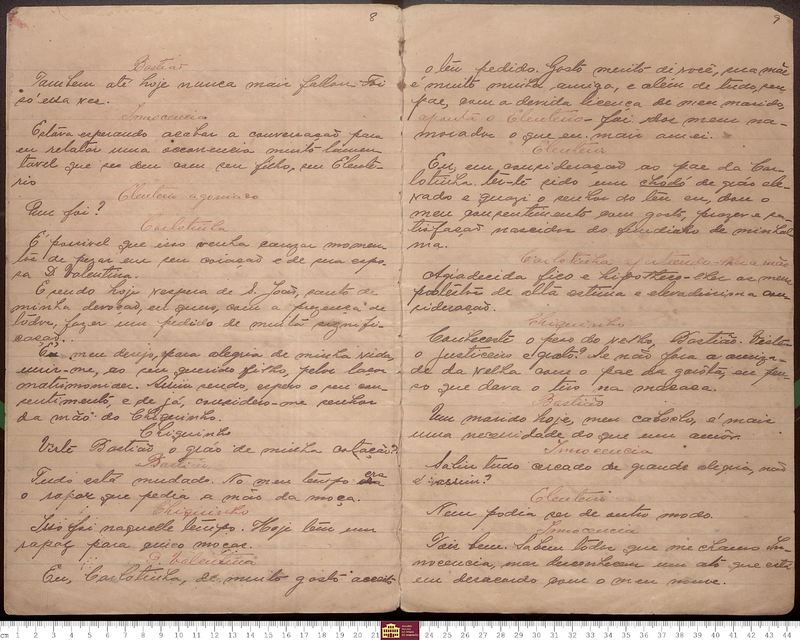 8
Bastião
Tambem até hoje nunca mais fallou. Foi
só essa vez.
Innocencia
Estava esperando acabar a conversação para
eu relatar uma occorrencia muito lamen-
tavel que se deu com seu filho, seu Eleute-
rio
Eleuterio agoniado
Que foi?
Carlotinha
É possivel que isso venha causar momen-
tos de pezar em seu coração e de sua espo-
sa D. Valentina.
E sendo hoje vespera de S. João, santo de
minha devoção, eu quero, com a presença de
todos, fazer um pedido de muita signifi-
cação.
É meu desejo, para alegria de minha vida,
unir-me, ao seu querido filho, pelos laços
matrimoniaes. Assim sendo, espero o seu con-
sentimento e de já, considero-me senhora
da mão do Chiquinho.
Chiquinho
Viste Bastião, o gráo de minha cotação?
Bastião
Tudo está mudado. No meu tempo era
o rapaz que pedia a mão da moça.
Chiquinho
Isso foi naquelle tempo. Hoje tem um
rapaz para quinze moças.
D. Valentina
Eu, Carlotinha, de muito gosto acceito
9
o teu pedido. Gosto muito de você, sua mãe
é muito minha amiga, e além de tudo, seu
pae, com a devida licença de meu marido,
aponta o Eleuterio - foi dos meus na-
morados o que eu mais amei.
Eleuterio
Eu, em consideração ao pae da Car-
lotinha ter-te sido um chodó de gráo ele-
vado e quasi o senhor do teu eu, dou o
meu consentimento com gosto, prazer e sa-
tisfação nascidos do fundinho de minh'al
ma.
Carlotinha
Agradecida fico e hypotheco-lhes os meus
protestos de alta estima e elevadissima con-
sideração.
Chiquinho
Conheceste o peso do velho, Bastião. Viste
o justiceiro Se não fora a amiza-
de da velha com o pae da garota, eu pen-
so que dava o teu na massa.
Bastião
Um marido hoje, meu caboclo, é mais
uma necessidade do que um amor.
Innocencia
Sahiu tudo cercado de grande alegria, não
é assim?
Eleuterio
Nem podia ser de outro modo.
Innocencia
Pois bem. Sabem todos que me chamo In-
nocencia, mas desconhecem um até que está
em desacordo com o meu nome.